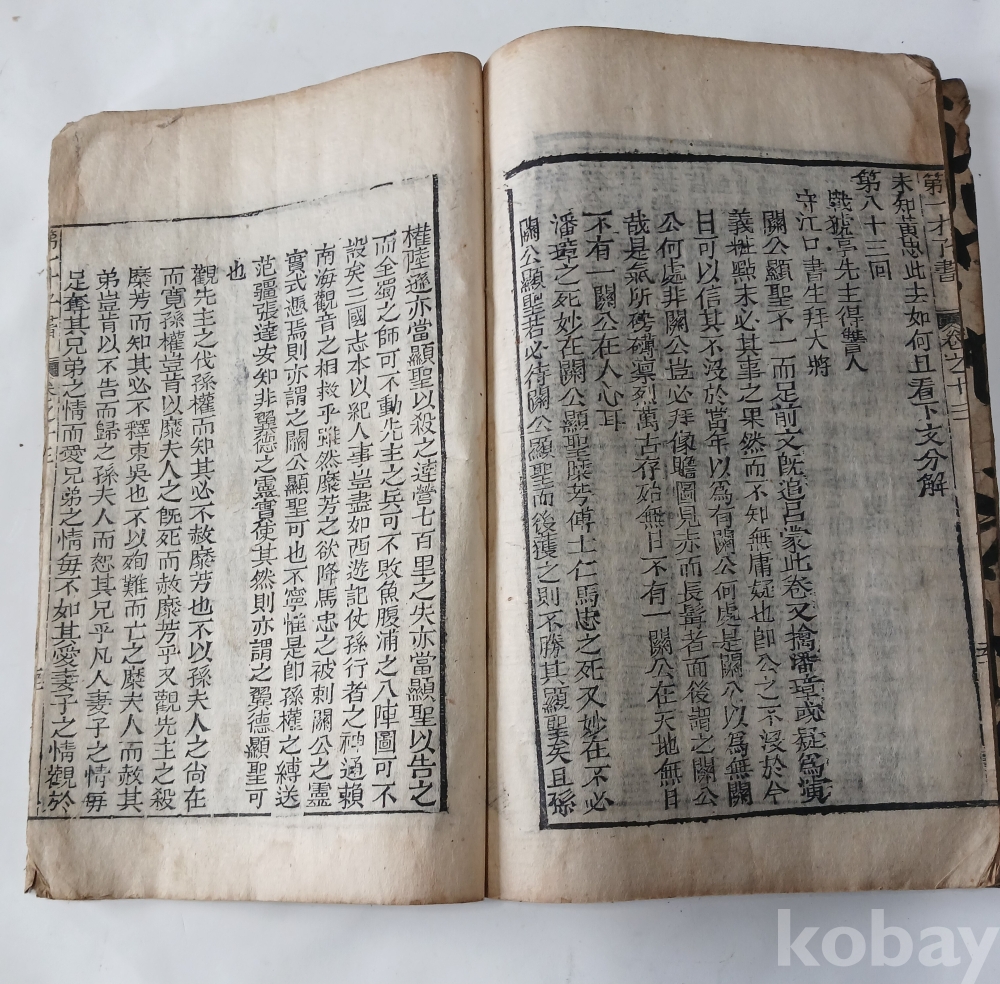 第一才子書 卷之十三
未知黃忠此去如何且看下文分解
第八十三回
戰猇亭先主得讐人
守江口書生拜大將
關公顯聖不一而足前文既追呂蒙此卷又擒潘璋或疑爲演
義粧點未必其事之果然而不知無庸疑也卽公之不沒於今
日可以信其不沒於當年以爲有關公何處是關公以爲無關
公何處非關公豈必拜像瞻圖見赤而長髯者而後謂之關公
哉是氣所磅礡凜烈萬古存始無日不有一關公在天地無日
不有一關公在人心耳
潘璋之死妙在關公顯聖糜芳傅士仁馬忠之死又妙在不必
關公顯聖若必待關公顯聖而後獲之則不勝其顯聖矣且孫
權陸遜亦當顯聖以殺之連營七百里之失亦當顯聖以告之
而全蜀之師可不動先主之兵可不敗魚腹浦之八陣圖可不
設矣三國志本以紀人事豈盡如西遊記仗孫行者之神通賴
南海觀音之相救乎雖然糜芳之欲降馬忠之被刺關公之靈
實式憑焉則亦謂之關公顯聖可也不寧惟是卽孫權之縛送
范疆張達安知非翼德之靈實使其然則亦謂之翼德顯聖可
也
觀先主之伐孫權而知其必不赦糜芳也不以孫夫人之尙在
而寬孫權豈肯以糜夫人之既死而赦糜芳乎又觀先主之殺
糜芳而知其必不釋東吳也不以殉難而亡之糜夫人而赦其
弟豈肯以不告而歸之孫夫人而恕其兄乎凡人妻子之情毎
足奪其兄弟之情而愛兄弟之情毎不如其愛妻子之情觀於